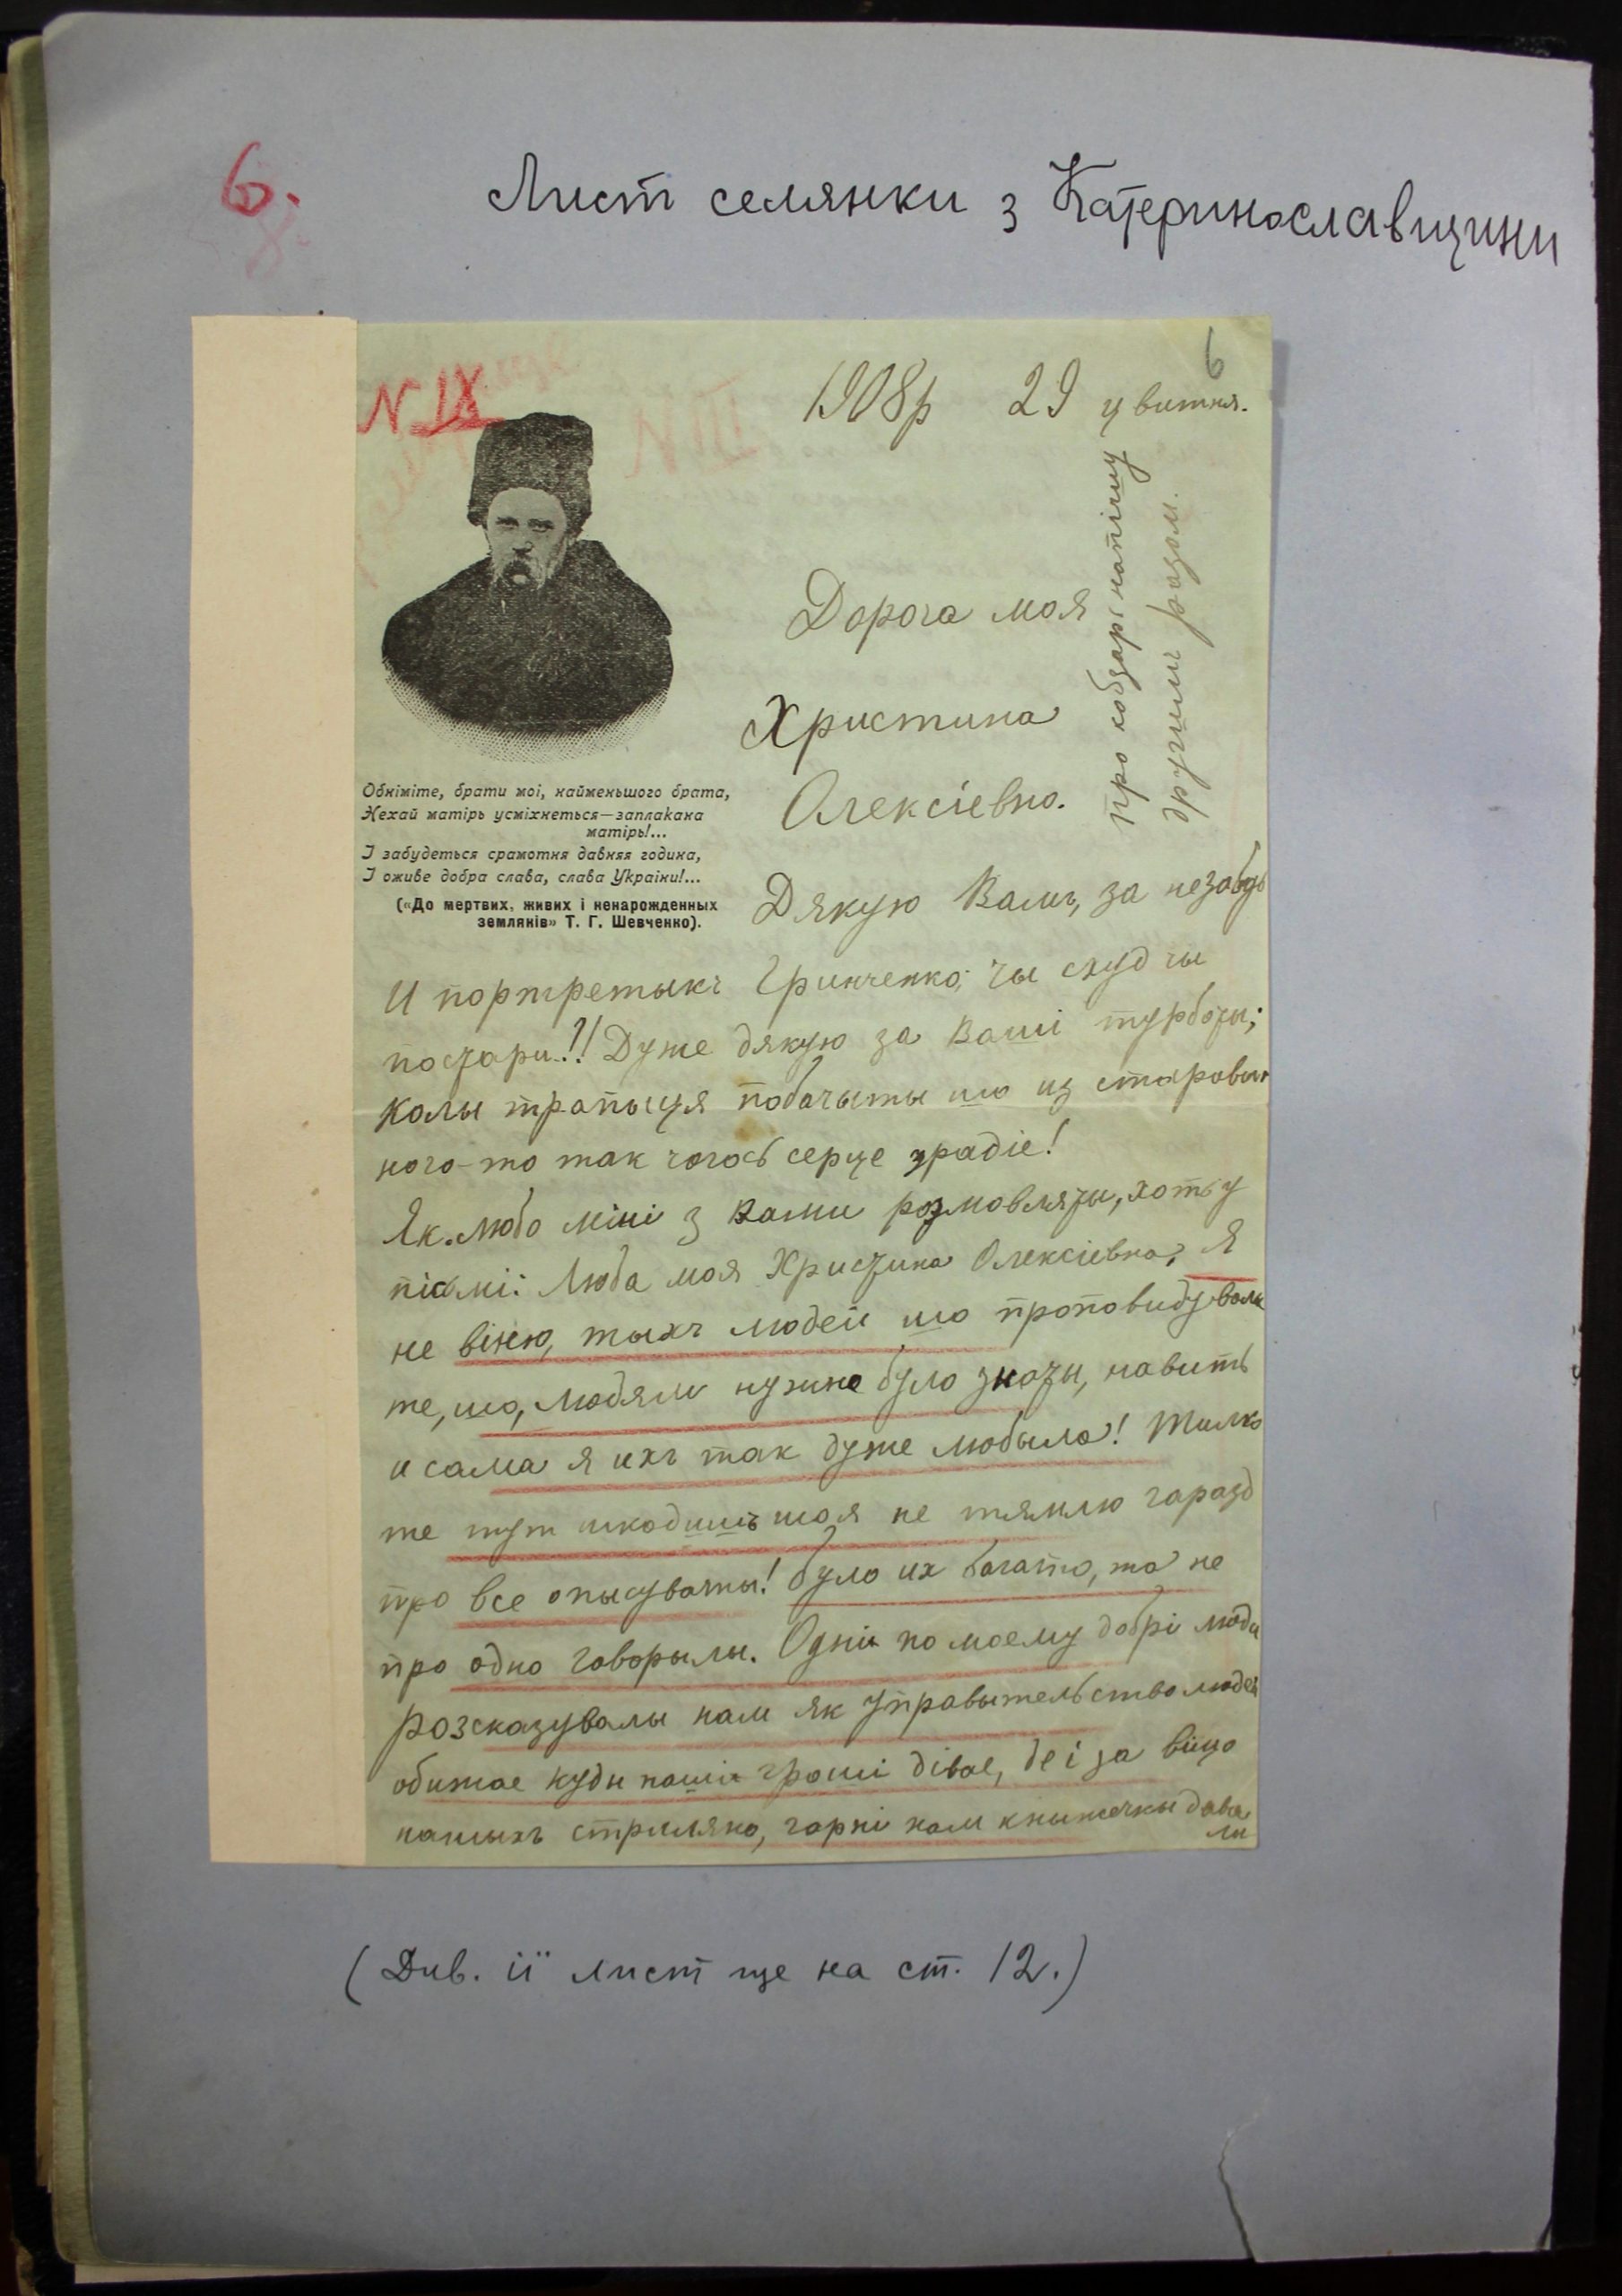 6.
Лист селянки з Катеринославщини
6
N IX
N III
1908р 29 цвитня.
про кобзарі напішу
другимъ разом.
Дорога моя
Христина
Олексіевно.
Обніміте, брати мої, найменьшого брата,
Нехай матірь усміхнеться—заплакана
матірь!...
І забудеться срамотня давняя година,
І оживе добра слава, слава України!...
(«До мертвих, живих і ненарожденных
землянів» Т. Г. Шевченко).
Дякую Вамъ, за незабудь
И портретыкъ Гринченко; чы схуд чы
постари!! Дуже дякую за Ваші турботы;
Колы трапыця побачыты що из старовын
ного-то так чогось серце зрадіе!
Як любо міні з Вами розмовляты, хоть у
пісьмі: Люба моя Христина Олексіевна, Я
не віню, тыхъ людей що проповидувалы
те, що, людям нужно було знаты, навить
и сама я ихъ так дуже любыла! Тилко
те тут шкодить що я не тямлю гаразд
про все опысуваты! було их багато, та не
про одно говорылы. Одни по моему добрі люди
розсказувалы нам як управытельство людей
обижае куды наши гроші дівае, де і за віщо
нашыхъ стриляно, гарні нам кныжечкы дава
ли
(Див. її лист ще на ст. 12.)